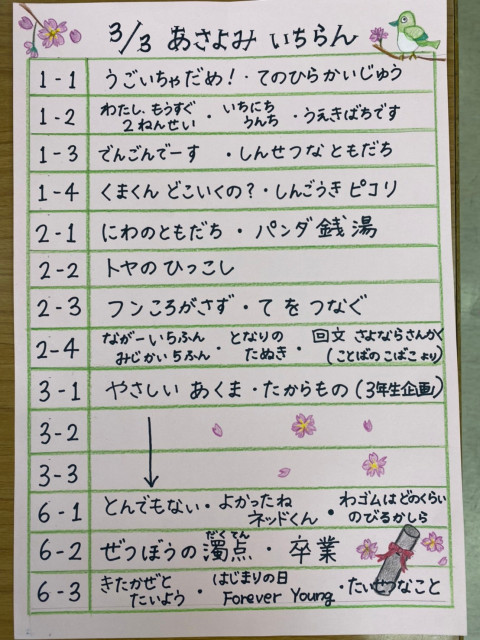 3/3 あさよみ いちらん
1-1 うごいちゃだめ!・てのひらかいじゅう
1-2 わたし、もうすぐ2ねんせい・いちにちうんち・うえきばちです
1-3 でんごんでーす ・しんせつなともだち
1-4 くまくん どこいくの?・しんごうき ピコリ
2-1 にわのともだち・パンダ銭湯
2-2 トヤのひっこし
2-3 フンころがさず・て を つなぐ
2-4 ながーいいちふん みじかいいちふん・となりのたぬき・回文 さよならさんかく(ことばのこばこより)
3-1 やさしい あくま・たからもの(3年生企画)
3-2
3-3
6-1 とんでもない・よかったね ネッドくん・わゴムはどのくらい のびるかしら
6-2 ぜつぼうの濁点・卒業
だくてん
6-3 きたかぜとたいよう・はじまりの日 Forever Young・たいせつなこと